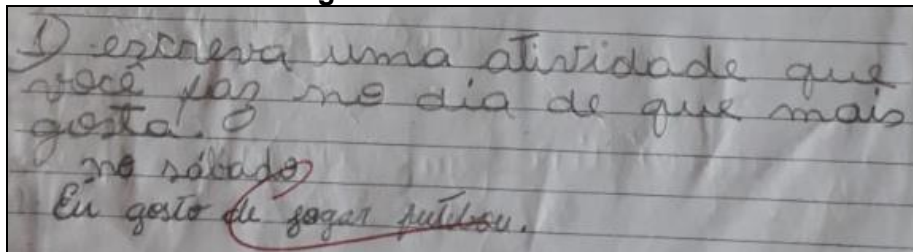 1) escreva uma atividade que
você faz no dia de que mais
gosta.
no sábado
Eu gosto de jogar futibou.